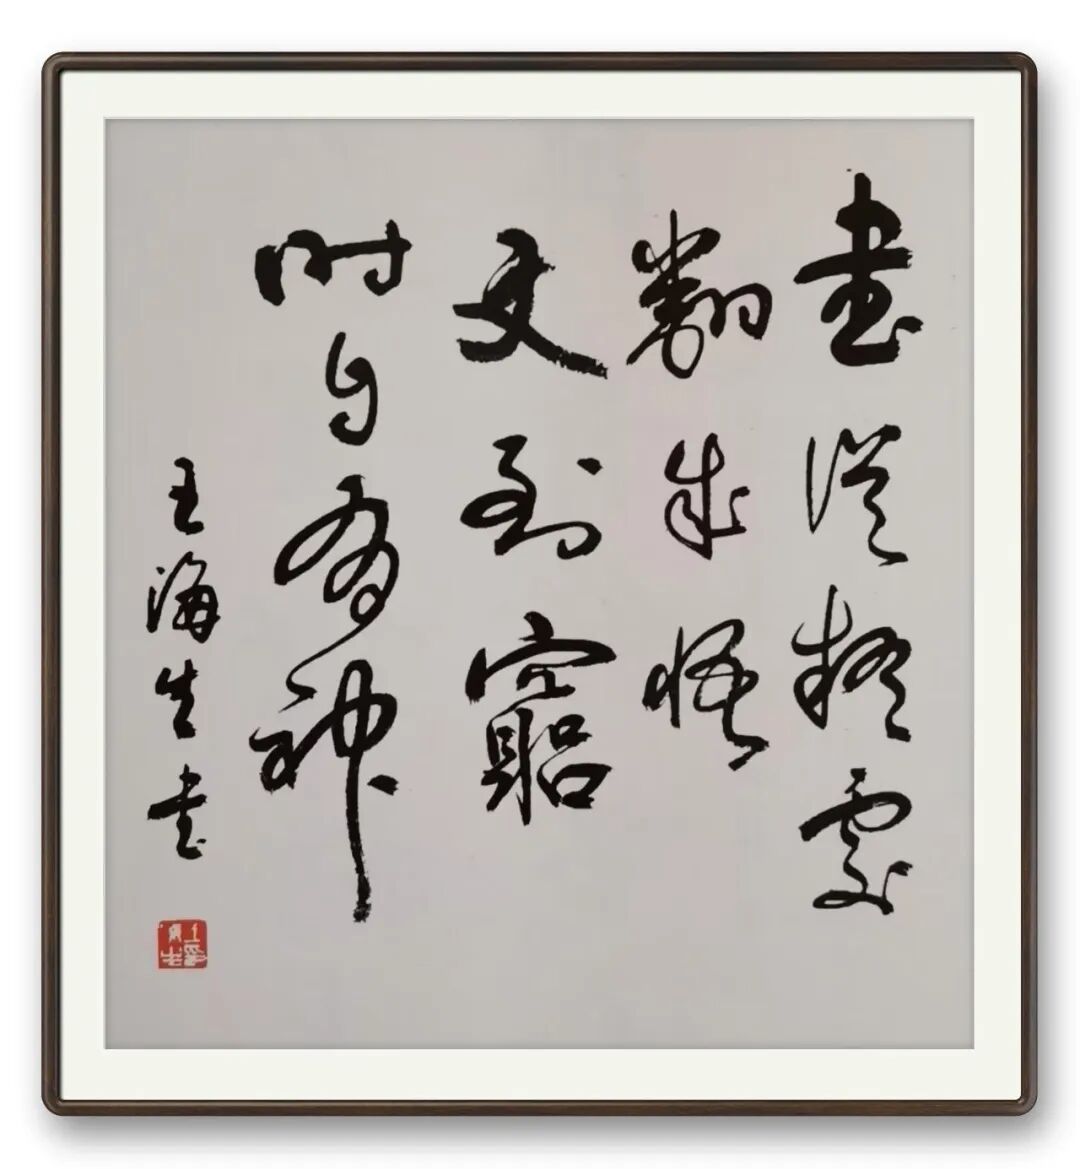 書從疑處
翻成悟
文到窮
時自有神
王海生書